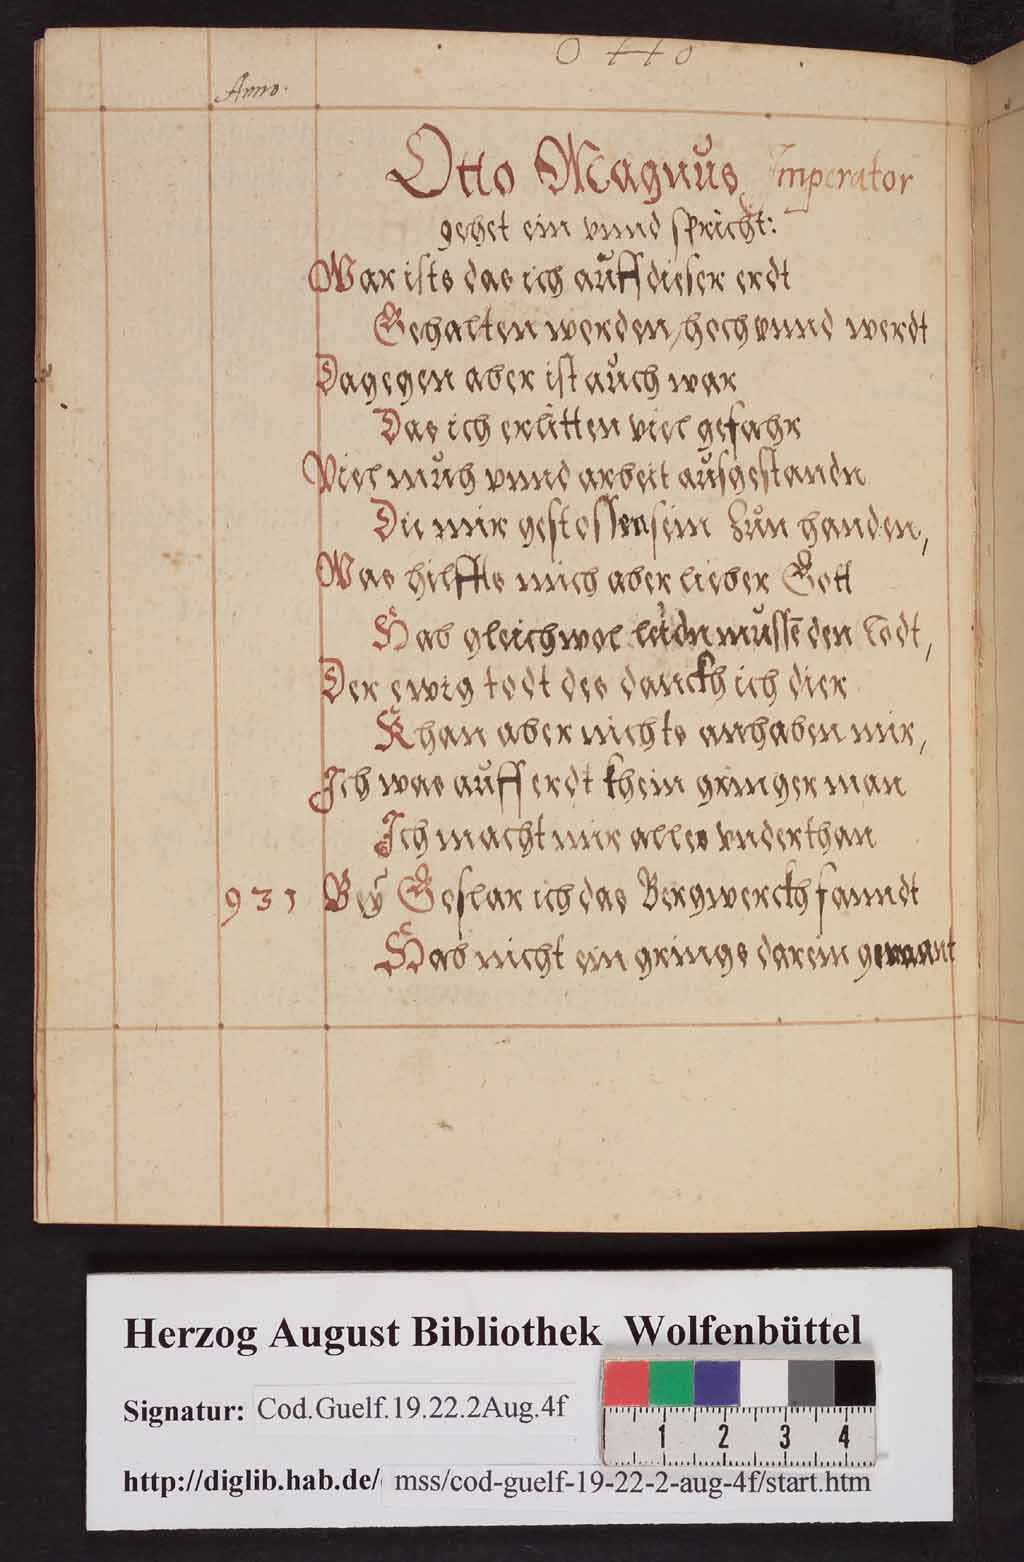 Otto
Anno.
Otto Magnus Imperator
gehet ein vnnd spricht:
War ists das ich auff dieser erdt
Gehalten worden, hoch vnnd werdt
Dagegen aber ist auch war
Das ich erlitten viel gefahr
Viel muh vnnd arbeit ausgestandn
Die mir gestossen sein zun handen,
Was hilffts mich aber lieber Gott
Hab gleichwol leidn mussē den todt,
Der ewig todt des danckh ich dier
Khan aber nichts anhaben mir,
Ich was auff erdt khein gringer man
Ich macht mir alles vnderthan
931 Bey Goslar ich das Bergwerckh fanndt
Hab nicht ein grings darein gewant
Herzog August Bibliothek Wolfenbüttel
Signatur: Cod.Guelf.19.22.2Aug.4f
1 2 3 4
http://diglib.hab.de/ mss/cod-guelf-19-22-2-aug-4f/start.htm